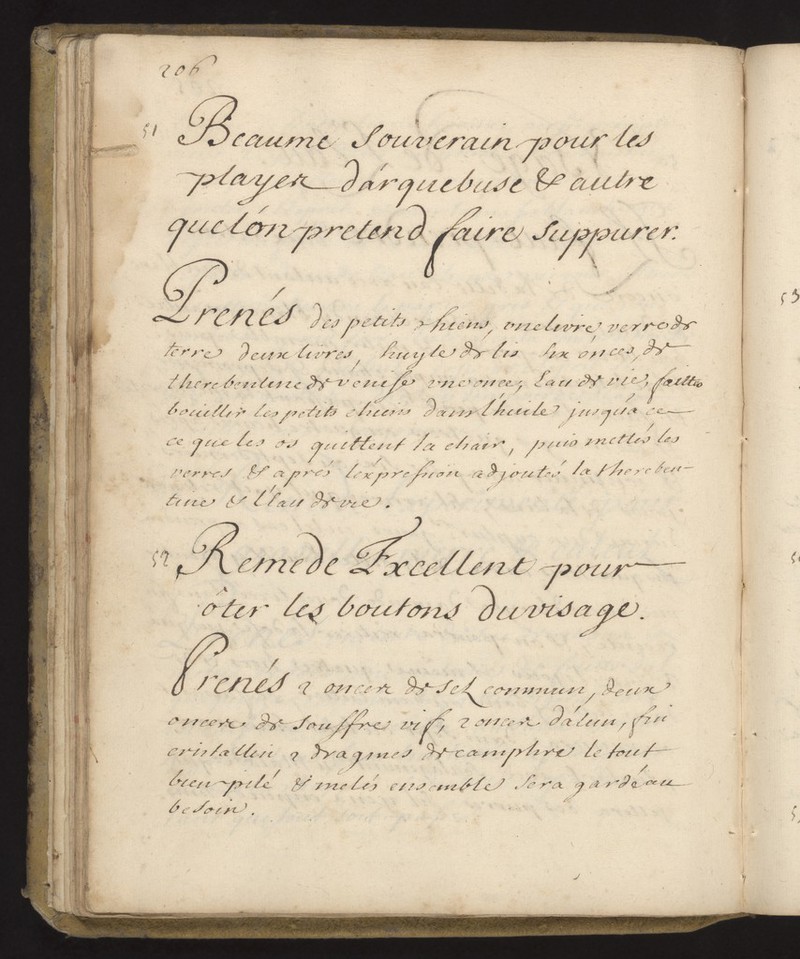 206
51 Beaume Souverain pour les
playez d'arquebuse & autre
que lón pretend faire suppurer.
Prenés des petits chiens, une livre, verre de
terre deux livres, huyle de lis six ónces, de
therebentine de venise une once, Eau de vie, faittes
boüillir les petits chiens dans l'huile jusqu'à ce
ce que les os quittent la chair, puis mettés les
verres & aprés l'expression adjoutés la thereben-
tine & l'Eau de vie.
52 Remede Excellent pour
ôter les boutons du visage.
Prenés 2 oncez de sel commun, deux
oncez de souffre vif, 2 oncez d'alun, fin
cristallin 2 dragmes de camphre le tout
bien pilé & melés ensemble sera gardé au
besoin.
53